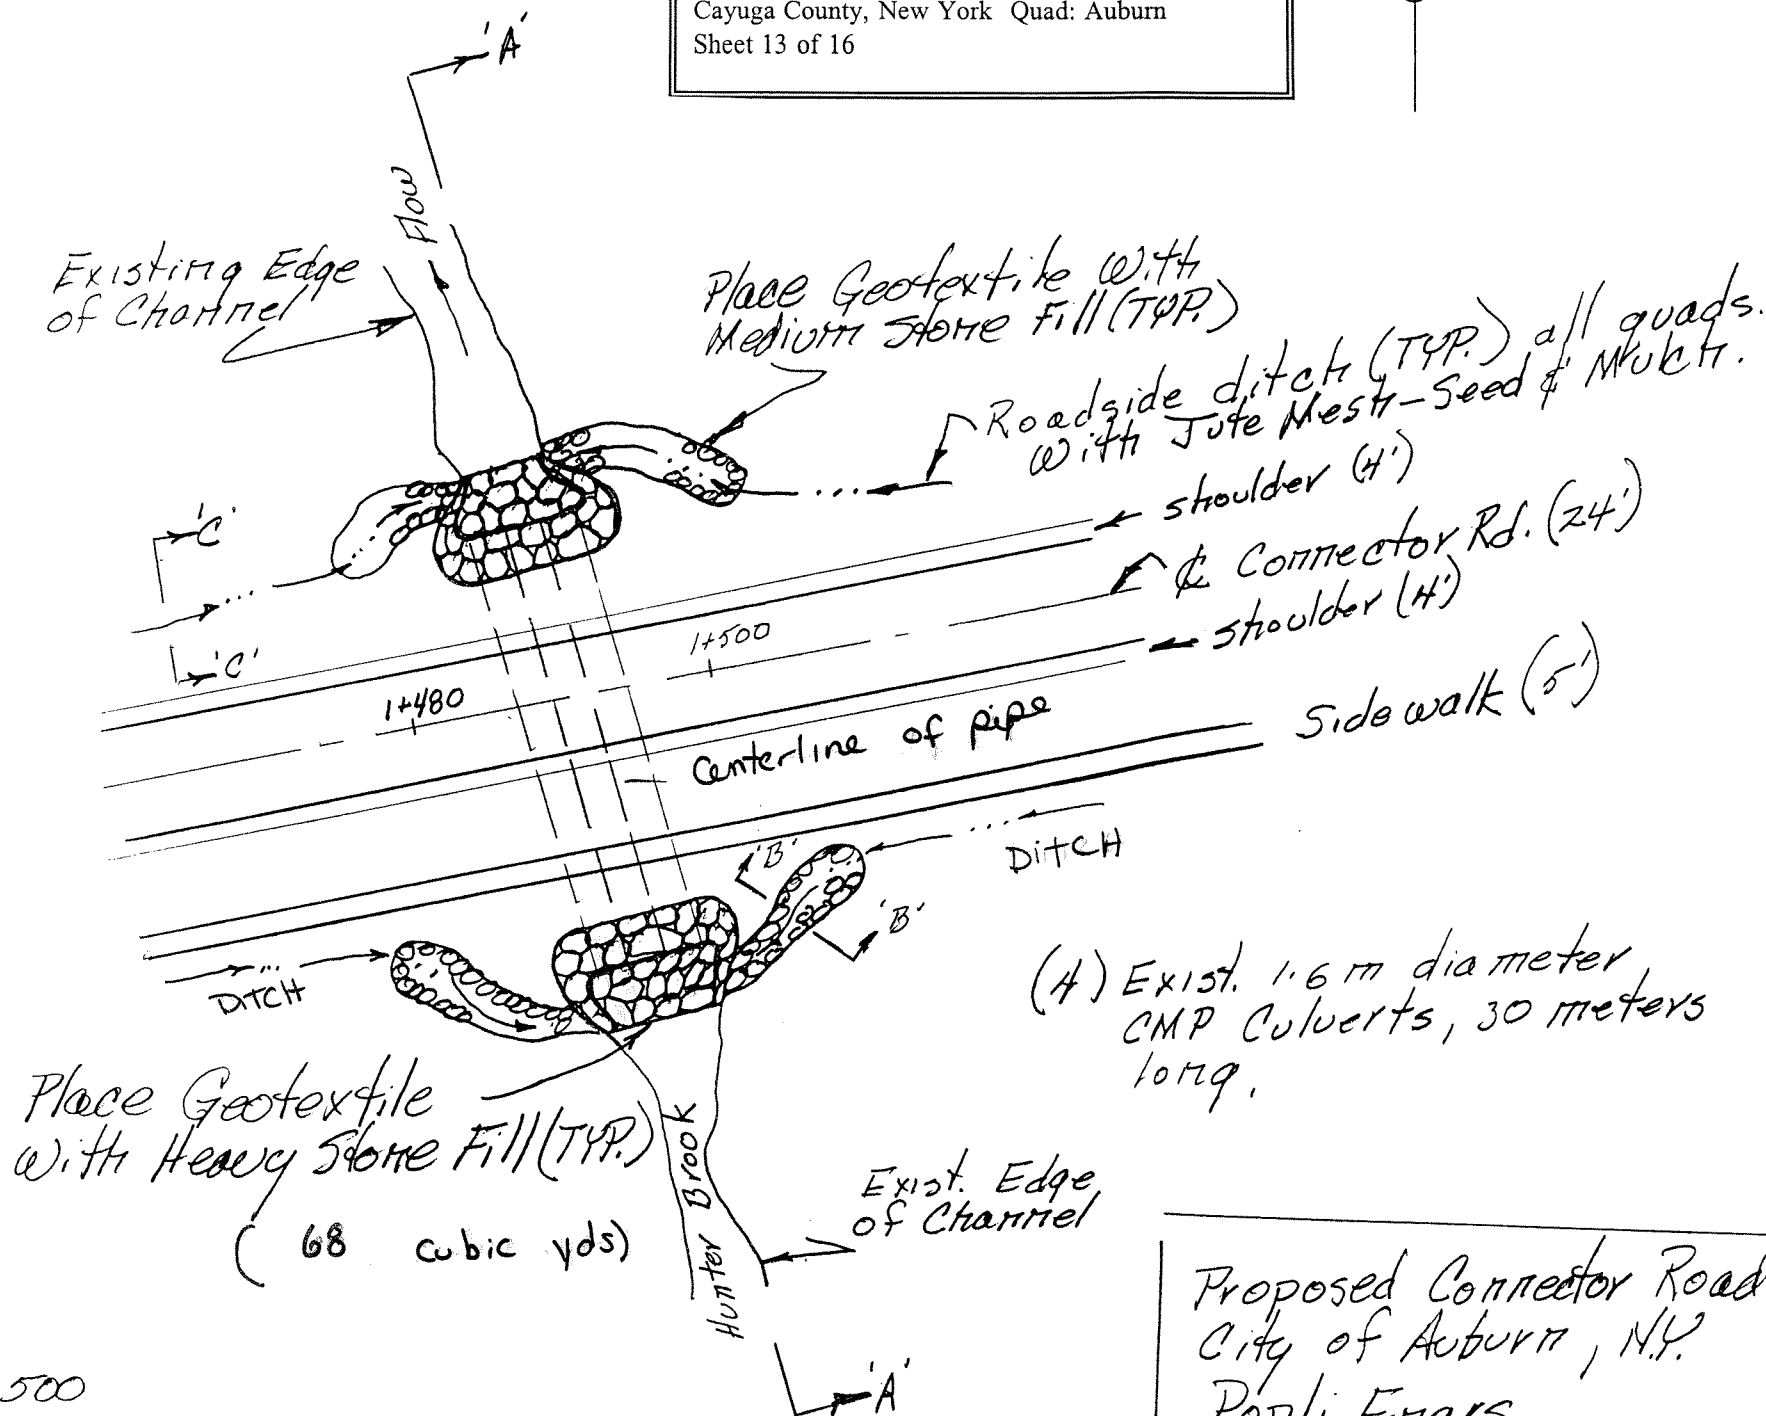 Cayuga County, New York  Quad: Auburn
Sheet 13 of 16
'A'
Flow
Existing Edge
of Channel
Place Geotextile With
Medium Stone Fill (TYP.)
Roadside ditch (TYP.) all quads.
With Jute Mesh-Seed & Mulch.
shoulder (4')
℄ Connector Rd. (24')
shoulder (4')
Sidewalk (5')
'C'
'C'
1+500
1+480
Centerline of pipe
'B'
'B'
DITCH
DITCH
(4) Exist. 1.6 m diameter
CMP Culverts, 30 meters
long.
Place Geotextile
With Heavy Stone Fill (TYP.)
( 68 cubic yds)
Hunter Brook
Exist. Edge
of Channel
'A'
Proposed Connector Road
City of Auburn, N.Y.
Engrs
500